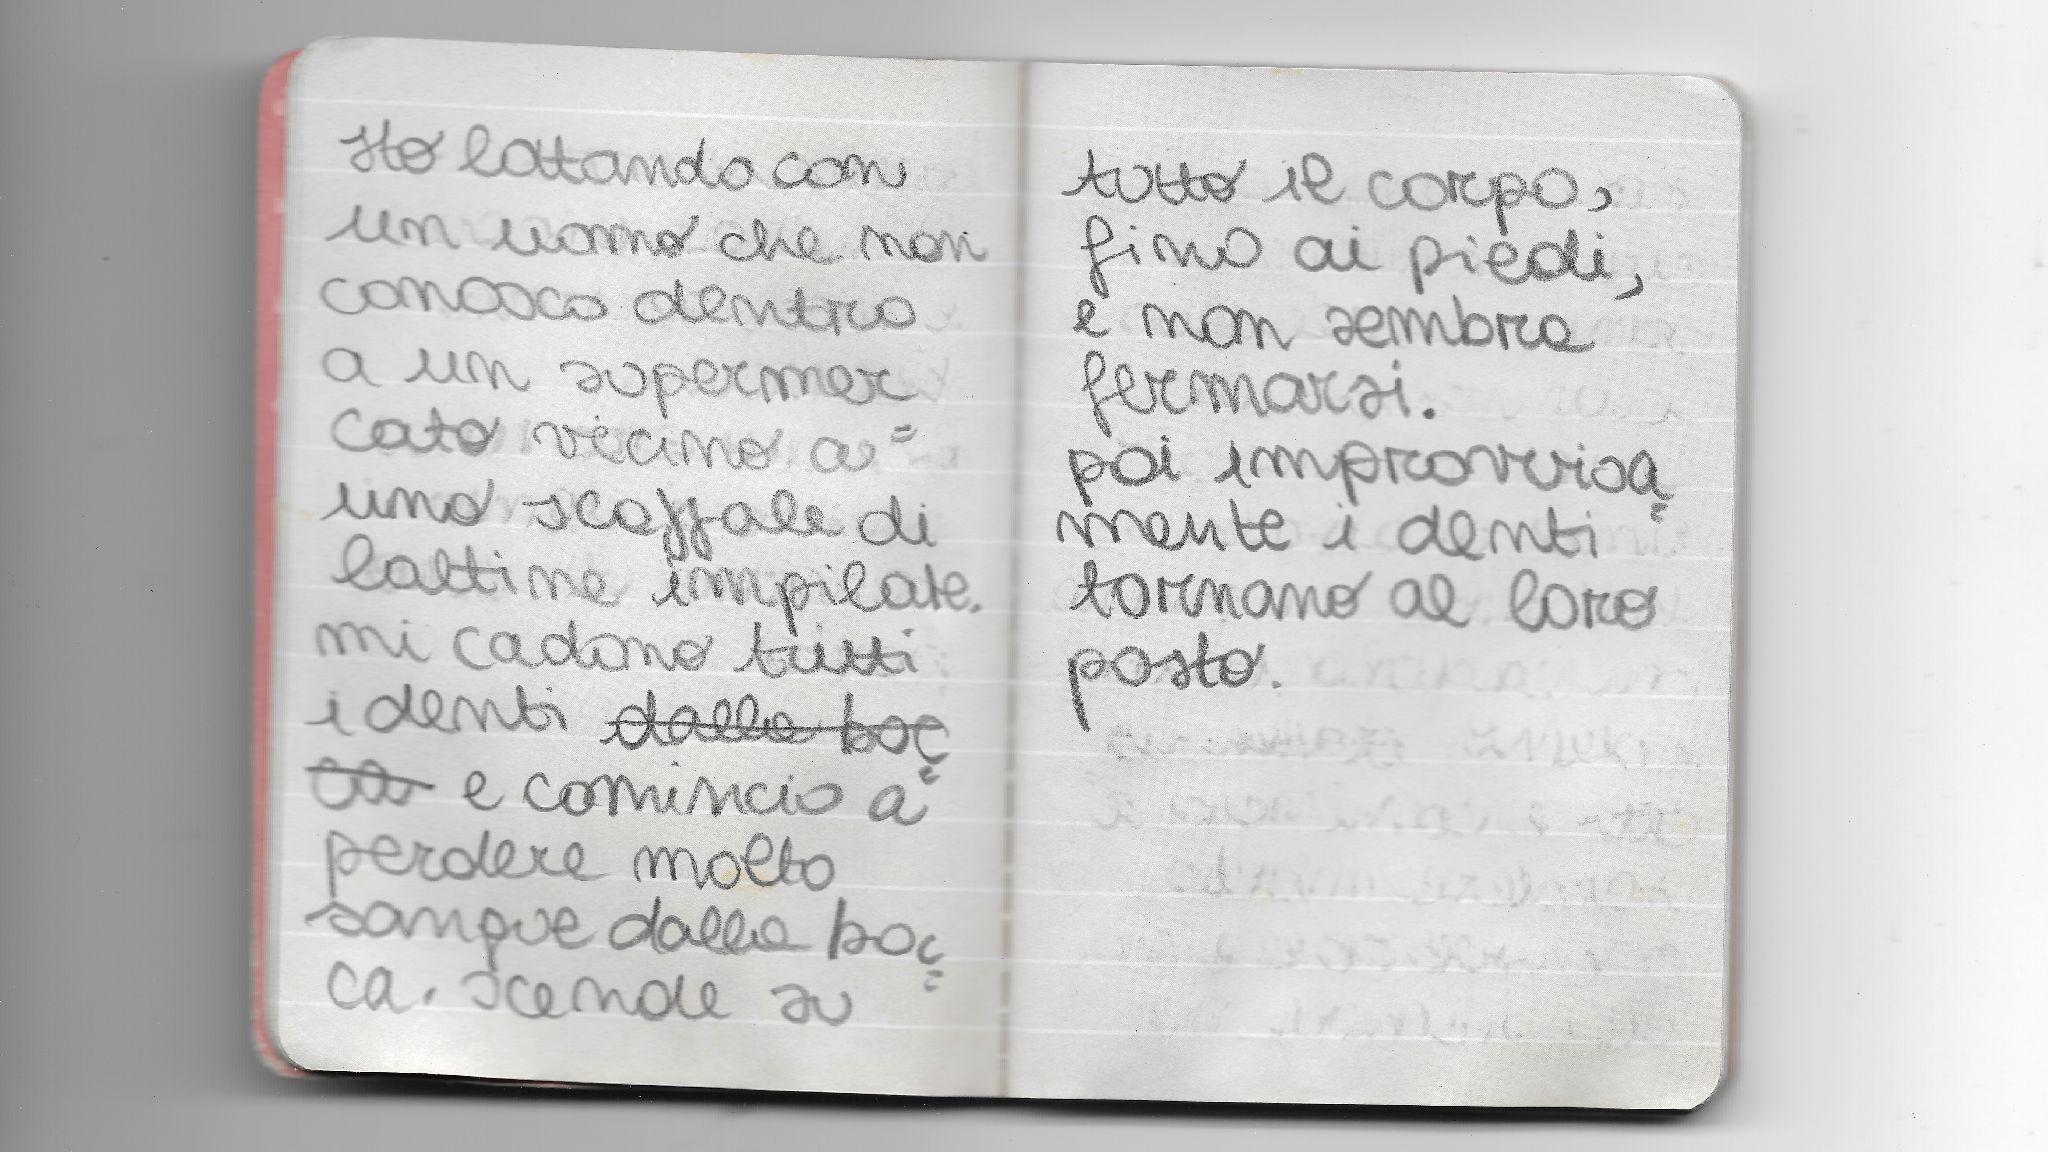 sto lottando con
un uomo che non
conosco dentro
a un supermer=
cato vicino a
uno scaffale di
lattine impilate.
mi cadono tutti
i denti dalla boc=
ca e comincio a
perdere molto
sangue dalla boc=
ca. scende su
tutto il corpo,
fino ai piedi,
e non sembra
fermarsi.
poi improvvisa=
mente i denti
tornano al loro
posto.